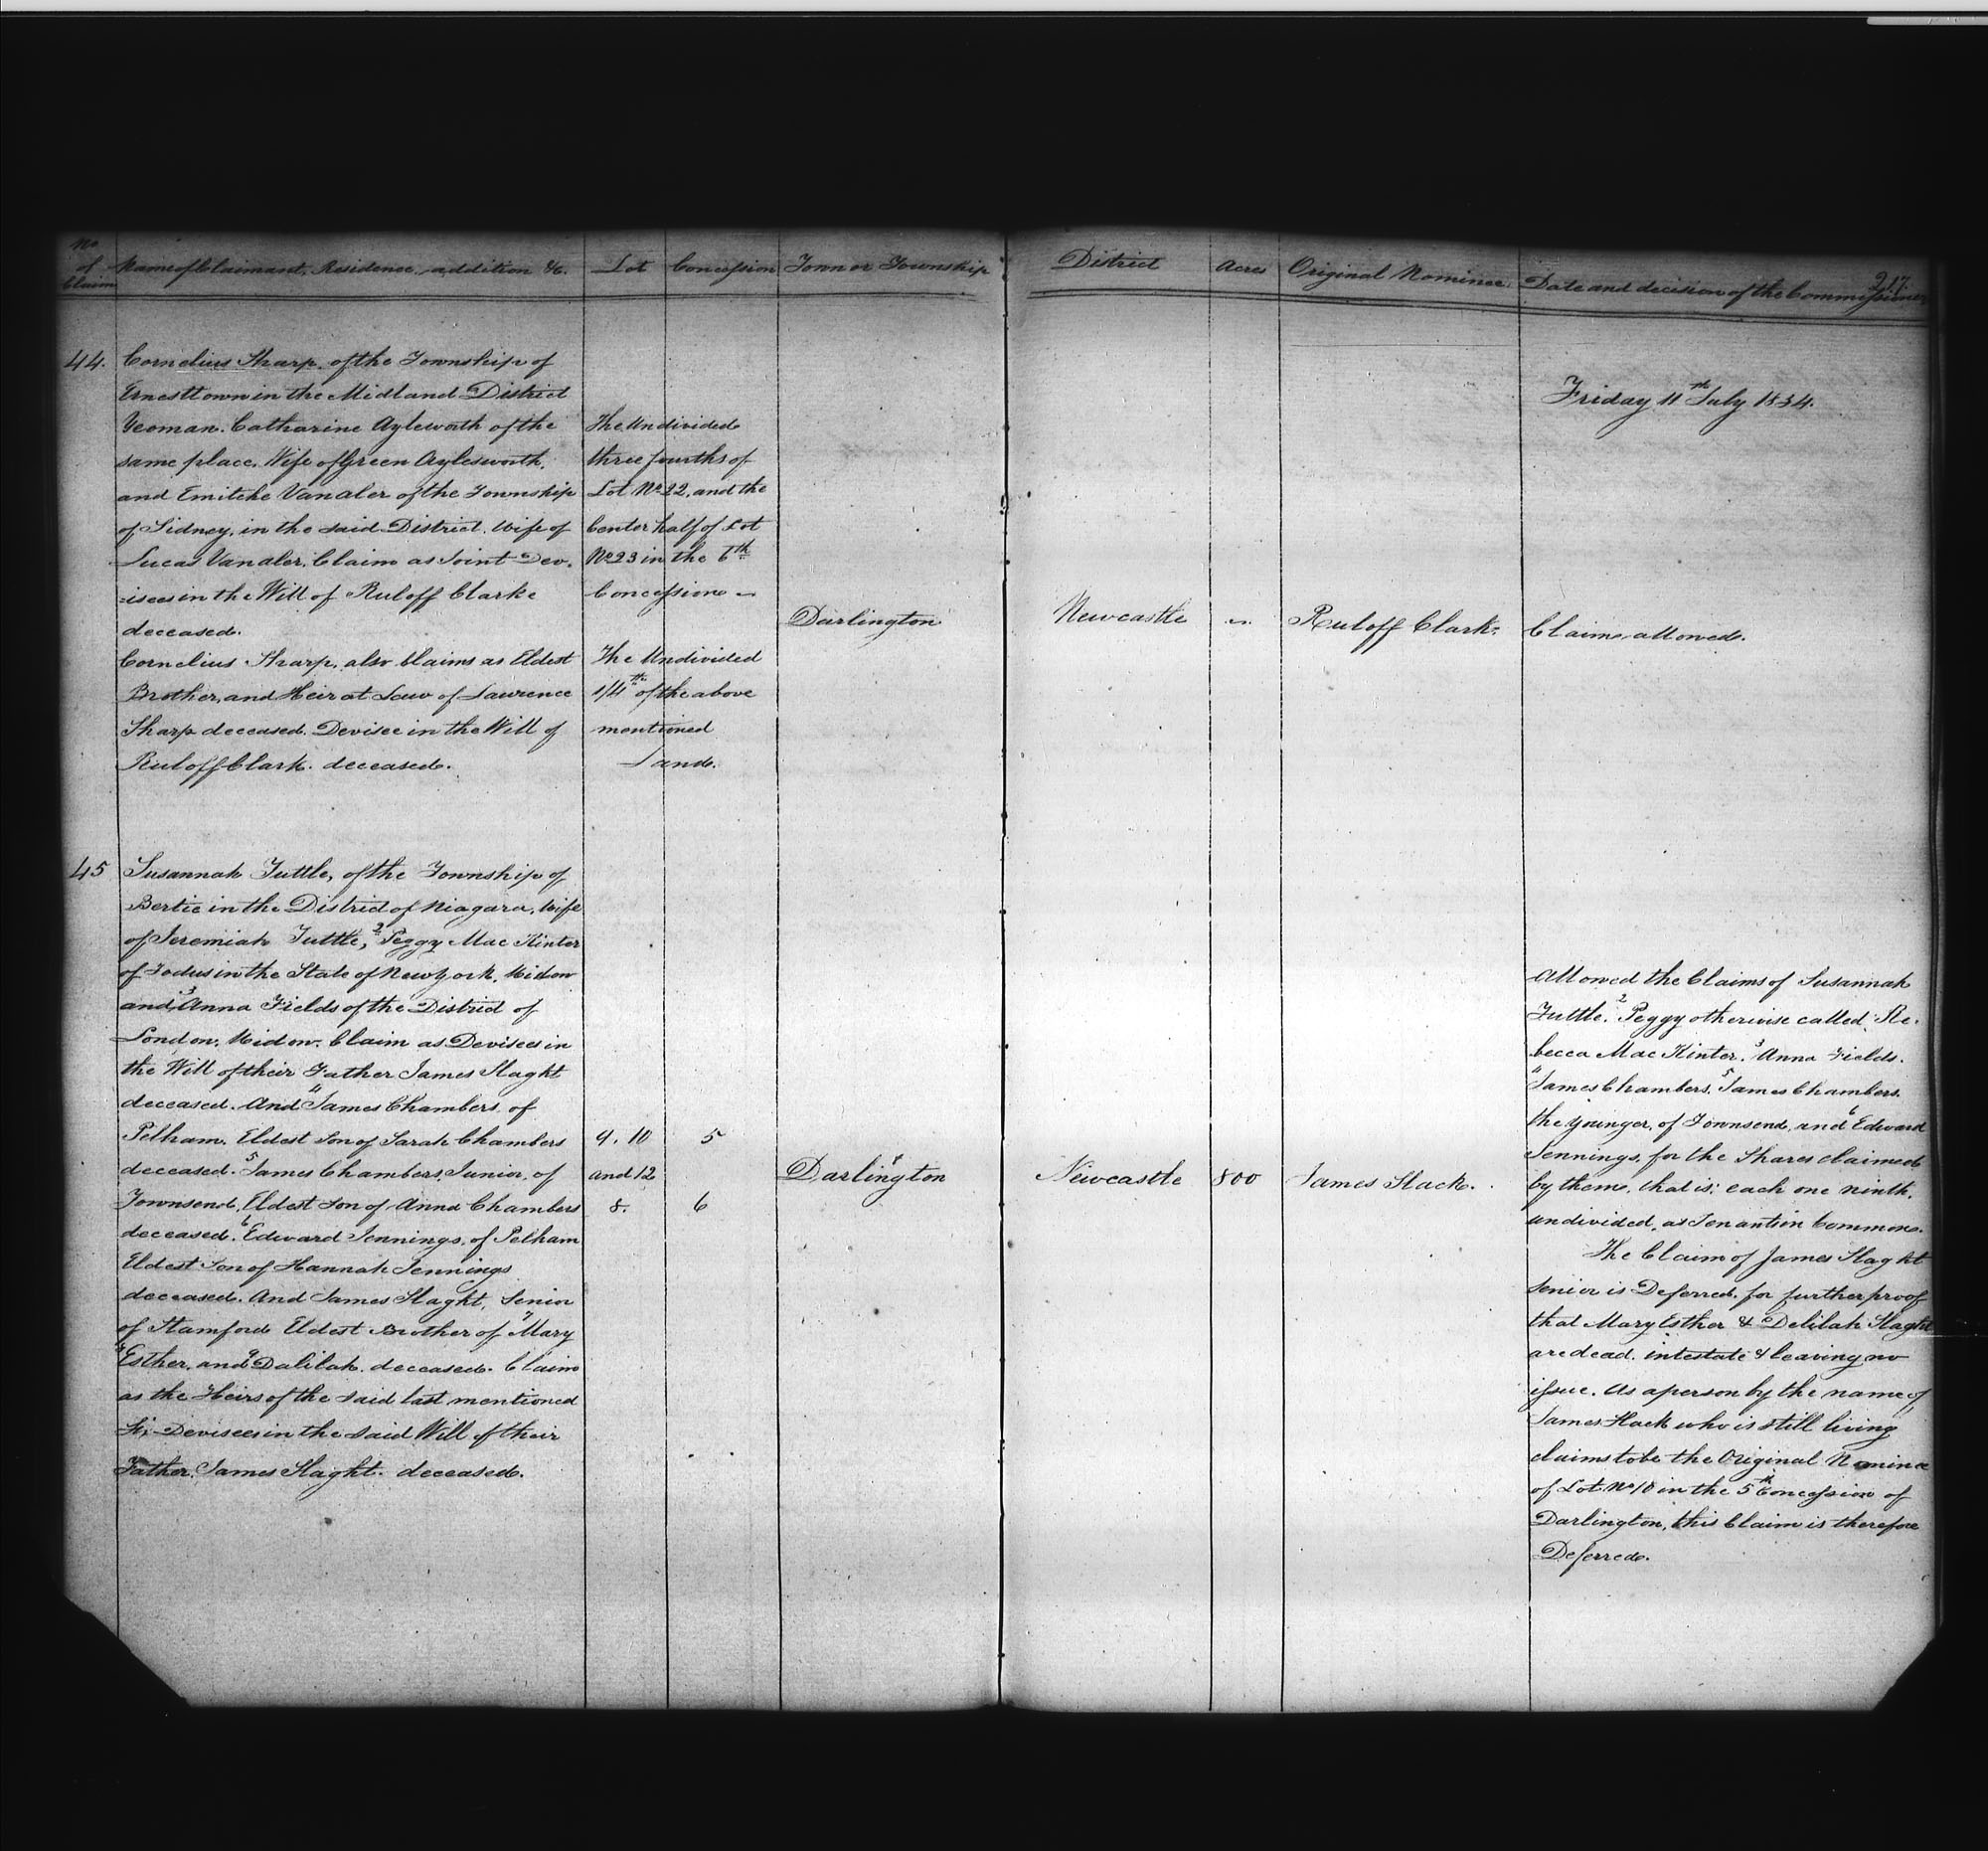 No of Claim
Name of Claimant, Residence, addition &c.
Lot
Concession
Town or Township
District
Acres
Original Nominee
Date and decision of the Commissioners
217
44.
Cornelius Sharp, of the Township of
Ernesttown in the Midland District
Yeoman. Catharine Aylsworth of the
same place, Wife of Green Aylesworth,
and Emiteke Vanaler of the Township
of Sidney, in the said District, Wife of
Lucas Vanaler. Claim as Joint Dev-
=isees in the Will of Ruloff Clarke
deceased.
Cornelius Sharp, also Claims as Eldest
Brother, and Heir at Law of Lawrence
Sharp deceased. Devisee in the Will of
Ruloff Clark. deceased.
The Undivided
three fourths of
Lot No 22, and the
Center half of Lot
No 23 in the 6th
Concession
The Undivided
1/4th of the above
mentioned
Land.
Darlington
Newcastle
"
Ruloff Clark.
Friday 11th July 1834.
Claim allowed.
45
Susannah Tuttle, of the Township of
Bertie in the District of Niagara, Wife
of Jeremiah Tuttle, 2 Peggy Mac Kinter
of Sodus in the State of New York, Widow
and 3 Anna Fields of the District of
London, Widow. Claim as Devisees in
the Will of their Father James Slaght
deceased. And 4 James Chambers of
Pelham, Eldest Son of Sarah Chambers
deceased. 5 James Chambers, Junior, of
Townsend, Eldest Son of Anna Chambers
deceased. 6 Edward Jennings, of Pelham
Eldest Son of Hannah Jennings
deceased. And James Slaght, Senior
of Stamford Eldest Brother of 7 Mary
8 Esther, and 9 Dalilah. deceased. Claim
as the Heirs of the said last mentioned
Six Devisees in the said Will of their
Father, James Slaght. deceased.
9. 10
and 12
8.
5
6
Darlington
Newcastle
800
James Slack.
Allowed the Claims of Susannah
Tuttle. 2 Peggy otherwise called Re-
becca Mac Kinter. 3 Anna Fields.
4 James Chambers. 5 James Chambers
the younger, of Townsend, and 6 Edward
Jennings, for the Shares claimed
by them, that is; each one ninth,
undivided, as Tenant in Common.
The Claim of James Slaght
Senior is Deferred, for further proof
that Mary Esther & Delilah Slaght
are dead. intestate & leaving no
issue. As a person by the name of
James Slack who is still living
claims to be the Original Nominee
of Lot No 10 in the 5th Concession of
Darlington, this Claim is therefore
Deferred.